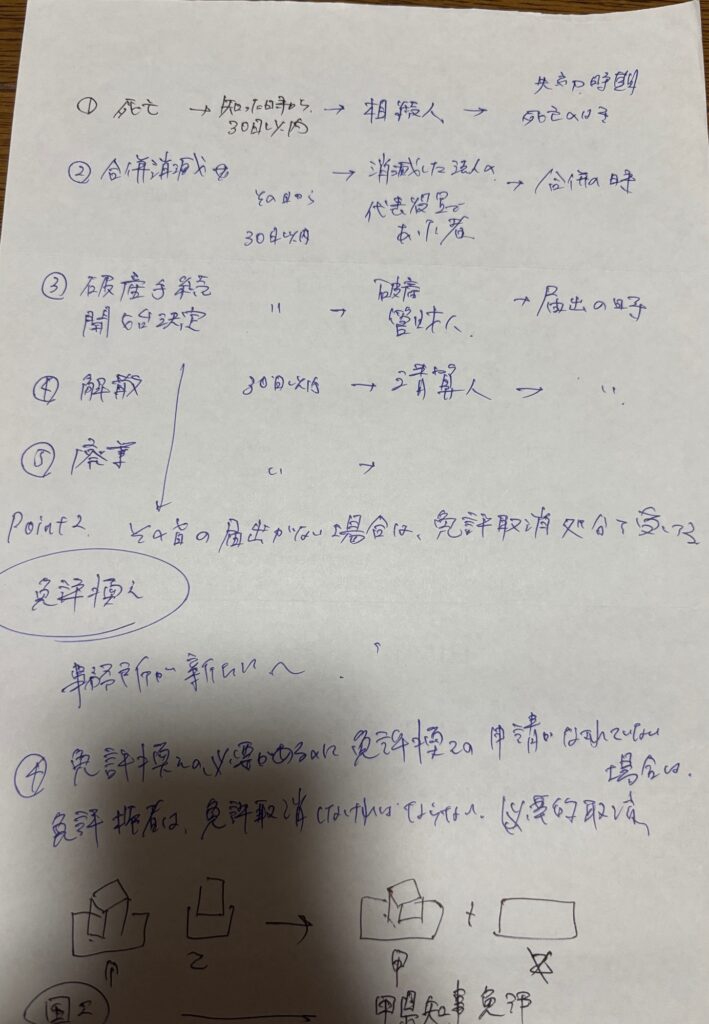 失効の時期
① 死亡 → 知った日から 30日以内 → 相続人 → 死亡の時
② 合併消滅 その日から 30日以内 → 消滅した法人の 代表役員で あった者 → 合併の時
③ 破産手続 開始決定 〃 → 破産 管財人 → 届出の時
④ 解散 30日以内 → 清算人 → 〃
⑤ 廃業 〃 →
Point2. その旨の届出がない場合は、免許取消処分で
免許換え
事務所が新たに
④ 免許換えの必要があるのに免許換えの申請がなされていない
場合は.
免許権者は、免許取消しなければならない. 必要的取消
→ +
甲 乙 甲
国土 甲県知事免許